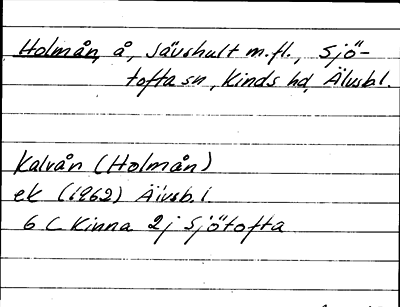 Holmån, å, Jävshult m.fl., Sjö-
tofta sn, Kinds hd, Älvsb.l.
Kalvån (Holmån)
ek (1962) Älvsb.l.
6 C Kinna 2j Sjötofta